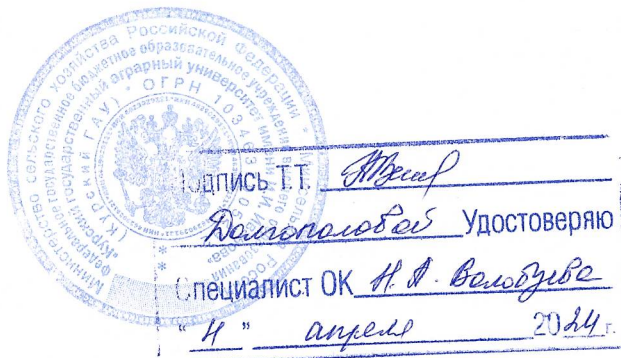 Министерство сельского хозяйства Российской Федерации
федеральное государственное бюджетное образовательное учреждение
«Курский государственный аграрный университет имени И.И.
(КУРСКИЙ ГАУ) * ОГРН
Подпись Т.Т.
Долгополовой Удостоверяю
Специалист ОК Н.А. Волобуева
" 4 " апреля 2024 г.